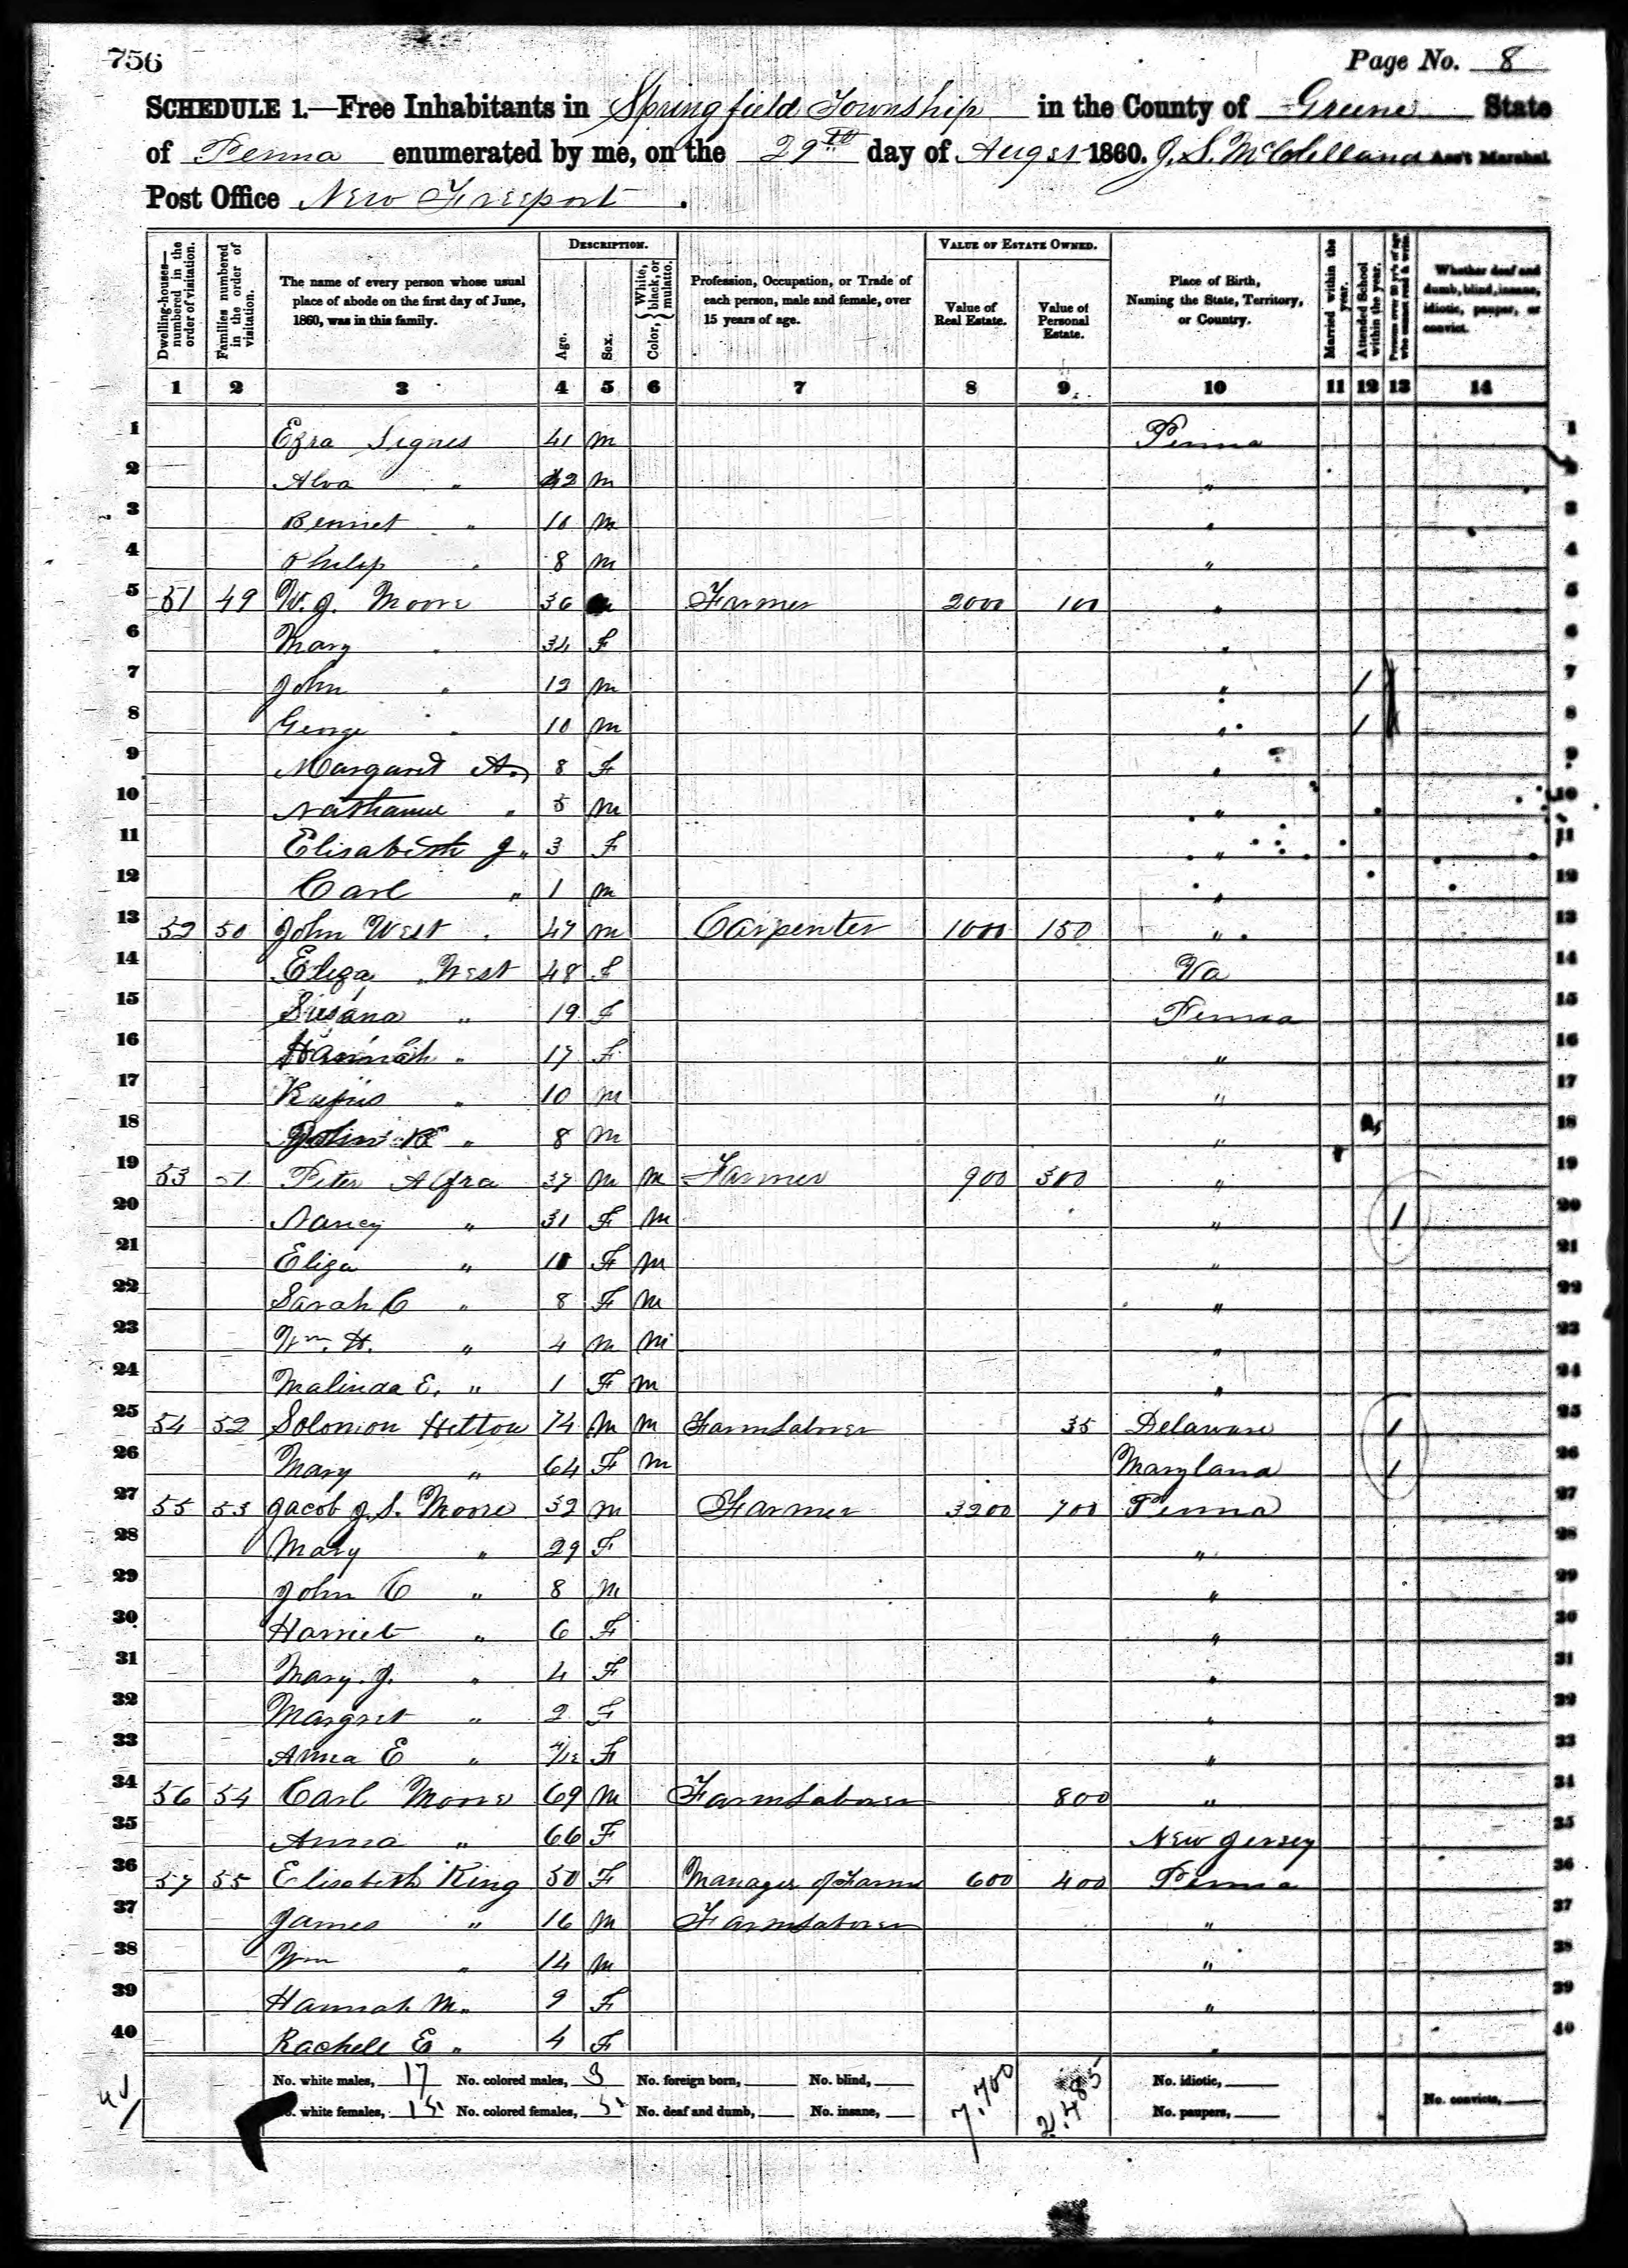 756
Page No. 8
SCHEDULE 1.—Free Inhabitants in Springfield Township in the County of Greene State
of Penna enumerated by me, on the 29th day of Augst 1860. J. S. McClelland Ass't Marshal
Post Office New Freeport.
Dwelling-houses—numbered in the order of visitation. Families numbered in the order of visitation. The name of every person whose usual place of abode on the first day of June, 1860, was in this family. DESCRIPTION. Age. Sex. Color, {White, black, or mulatto. Profession, Occupation, or Trade of each person, male and female, over 15 years of age. VALUE OF ESTATE OWNED. Value of Real Estate. Value of Personal Estate. Place of Birth, Naming the State, Territory, or Country. Married within the year. Attended School within the year. Persons over 20 y'rs of age who cannot read & write. Whether deaf and dumb, blind, insane, idiotic, pauper, or convict.
1 2 3 4 5 6 7 8 9 10 11 12 13 14
1 Ezra 41 m Penna 1
2 Alva " m " 2
3 Bennet " m " 3
4 Philip " 8 m " 4
5 51 49 W. J. Moore 36 Farmer 2000 100 " 5
6 Mary " 34 F " 6
7 John " 12 m " / 7
8 George " 10 m " / 8
9 Margaret A " 8 F " 9
10 " 5 m " 10
11 Elisabeth J " 3 F " 11
12 Carl " 1 m " 12
13 52 50 John West 47 m Carpenter 1000 150 " 13
14 Eliza West 48 F Va 14
15 Susana " 19 F Penna 15
16 Hannah " 17 F " 16
17 Rufus " 10 m " 17
18 " 8 m " 18
19 53 51 Peter Alfra 37 m m Farmer 900 300 " 19
20 Nancy " 31 F m " 1 20
21 Eliza " F m " 21
22 Sarah C " 8 F m " 22
23 Wm. H. " 4 m m " 23
24 Malinda E. " 1 F m " 24
25 54 52 Solomon Hetton 74 m m Farm Laborer 35 Delaware 1 25
26 Mary " 64 F m Maryland 1 26
27 55 53 Jacob J. S. Moore 32 m Farmer 3200 700 Penna 27
28 Mary " 29 F " 28
29 John C " 8 m " 29
30 Harriet " 6 F " 30
31 Mary. J. " 4 F " 31
32 Margret " 2 F " 32
33 Anna E " F " 33
34 56 54 Carl Moore 69 m Farm Laborer 800 " 34
35 Anna " 66 F New Jersey 35
36 57 55 Elisabeth King 50 F Manager of Farm 600 400 Penna 36
37 James " 16 m Farm Laborer " 37
38 Wm " 14 m " 38
39 Hannah M " 9 F " 39
40 Rachell E " 4 F " 40
No. white males, 17 No. colored males, 3 No. foreign born, No. blind, 7,700 2,485 No. idiotic,
No. white females, 15 No. colored females, 5 No. deaf and dumb, No. insane, No. paupers, No. convicts,